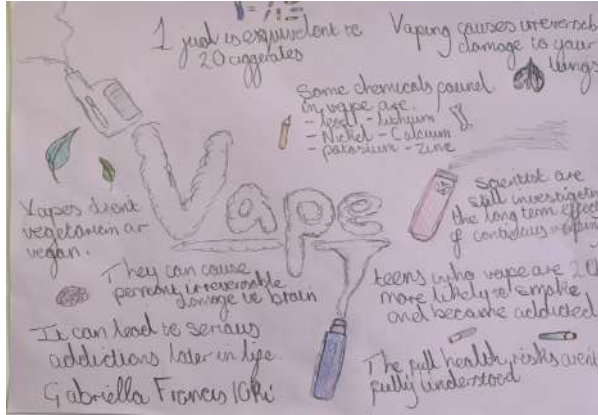 1 juul is equivelent to
20 ciggerates
Vaping causes irreversab
damage to your
lungs
Some chemicals found
in vape are.
- lead - lithium
- Nickel - Calcium
- potasium - zinc
Vape
Vapes arent
vegetarian or
vegan.
scientist are
still investigating
the long term effect
of contious vaping
They can cause
permant irreversable
damage to brain
teens who vape are
more likely to smoke
and become addicted
It can lead to serious
addictions later in life.
The full health risks arent
fully understood
Gabriella Francis